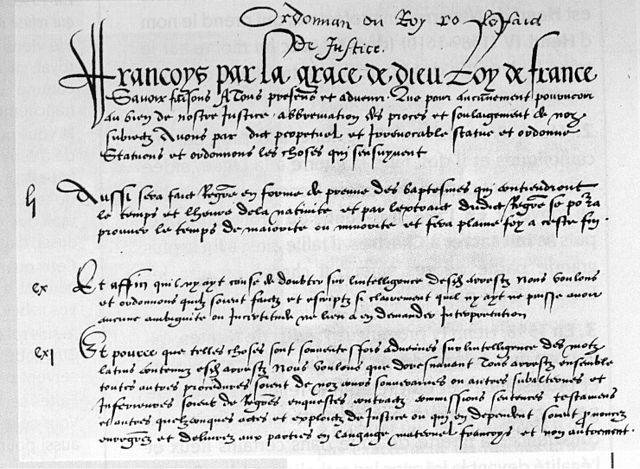 Ordonnan du Roy
de Justice.
Francoys par la grace de dieu Roy de france
Savoir faisons A Tous presens et advenir. Que pour aucunement pourveoir
au bien de nostre Justice abbreviation des proces et soulaigement de noz
subiectz Avons par dict perpetuel et Irrevocable statue et ordonne
Statuons et ordonnons les choses qui sensuyvent
Aussi sera faict Regre en forme de preuve des baptesmes qui contiendront
le temps et lheure de la nativite et par lextraict dudict Regre se porra
prouver le temps de maiorite ou minorite et fera plaine foy a ceste fin
ex Et affin quil ny ayt cause de doubter sur lintelligence desd arrestz Nous voulons
et ordonnons quilz soient faictz et escriptz si clairement quil ny ayt ne puisse avoir
aucune ambiguite ou Incertitude ne lieu a en demander Interpretation
exj Et pource que telles choses sont souventesfois advenues sur lintelligence des motz
latins contenuz esd arrestz Nous voulons que doresnavant Tous arrestz ensemble
toutes autres procedures soient de noz cours souveraines ou autres subalternes et
Inferieures soient de Regres enquestes contractz commissions sentences testamens
et autres quelzconques actes et exploictz de Justice ou qui en dependent soient prononcez
enregrez et delivrez aux parties en langaige maternel francoys et non autrement.